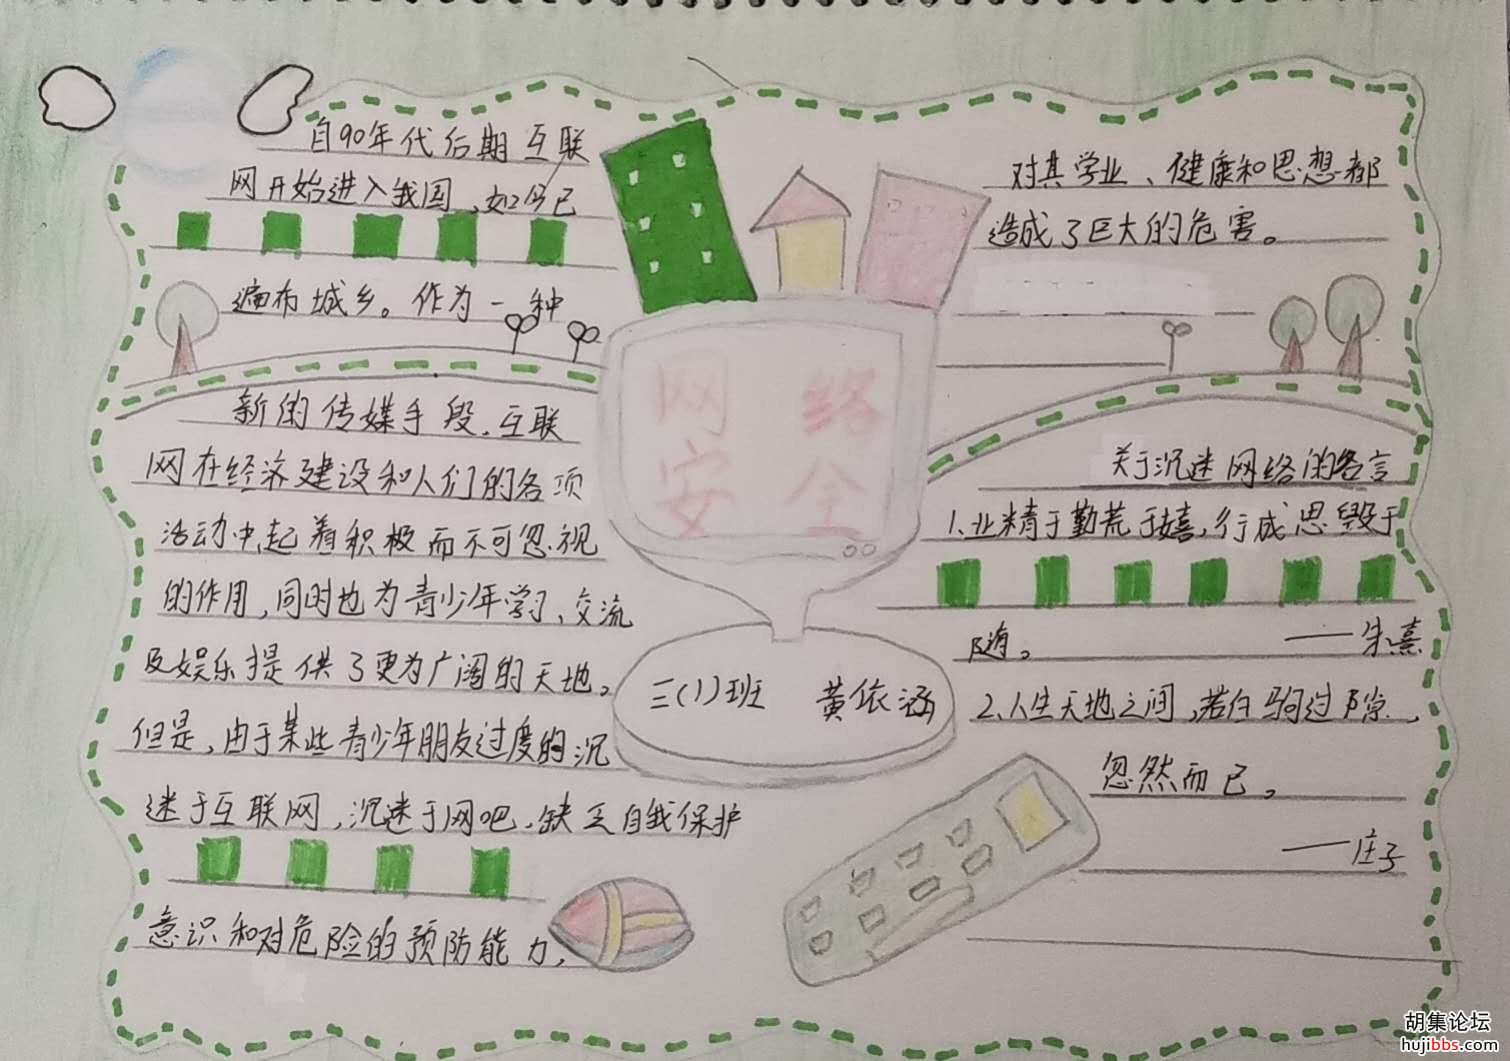 自90年代后期互联
网开始进入我国,如今已
遍布城乡。作为一种
新的传媒手段,互联
网在经济建设和人们的各项
活动中,起着积极而不可忽视
的作用,同时也为青少年学习、交流
及娱乐提供了更为广阔的天地。
但是,由于某些青少年朋友过度的沉
迷于互联网,沉迷于网吧,缺乏自我保护
意识和对危险的预防能力,
网络
安全
三(1)班 黄依涵
对其学业、健康和思想都
造成了巨大的危害。
关于沉迷网络的名言
1.业精于勤荒于嬉,行成思毁于
随。 ——朱熹
2.人生天地之间,若白驹过隙,
忽然而已。
——庄子
胡集论坛
hujibbs.com